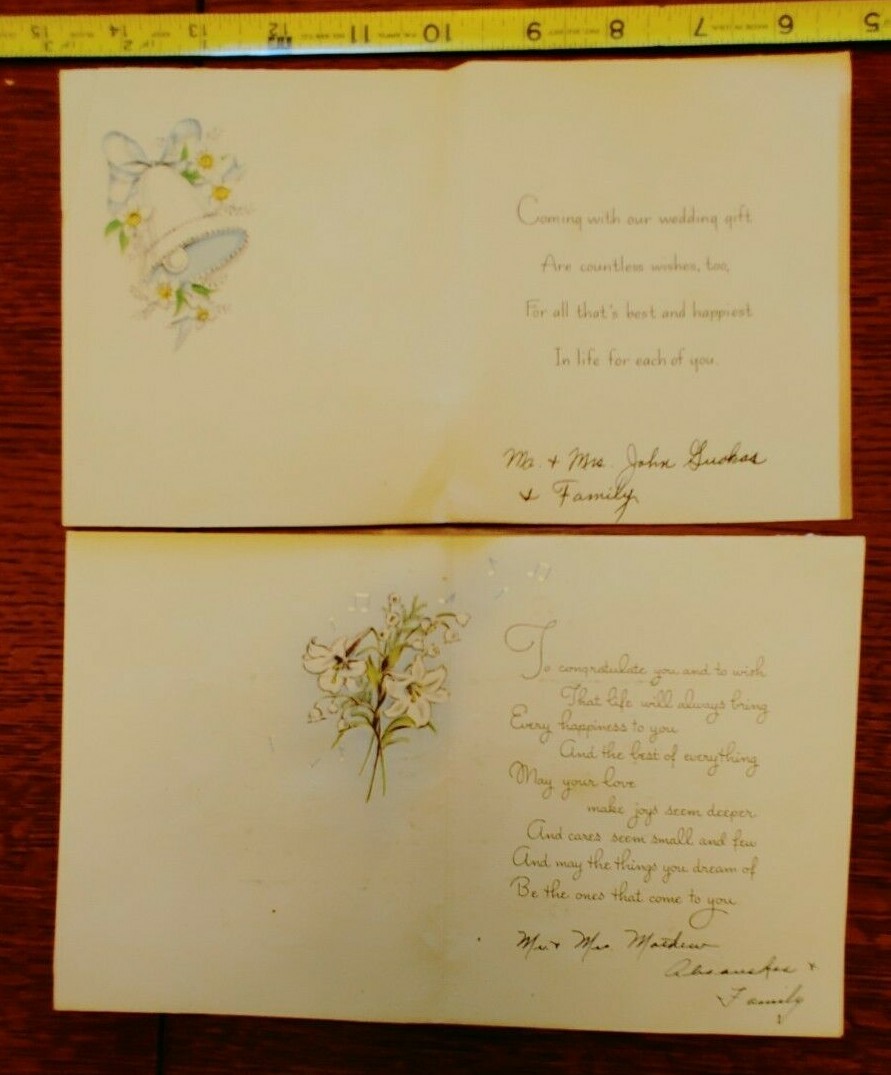 15 14 13 12 11 10 9 8 7 6 5
Coming with our wedding gift
Are countless wishes, too,
For all that's best and happiest
In life for each of you.
Mr. + Mrs. John
+ Family
To congratulate you and to wish
That life will always bring
Every happiness to you
And the best of everything
May your love
make joys seem deeper
And cares seem small and few
And may the things you dream of
Be the ones that come to you.
Mr. + Mrs. Mathew
+
Family